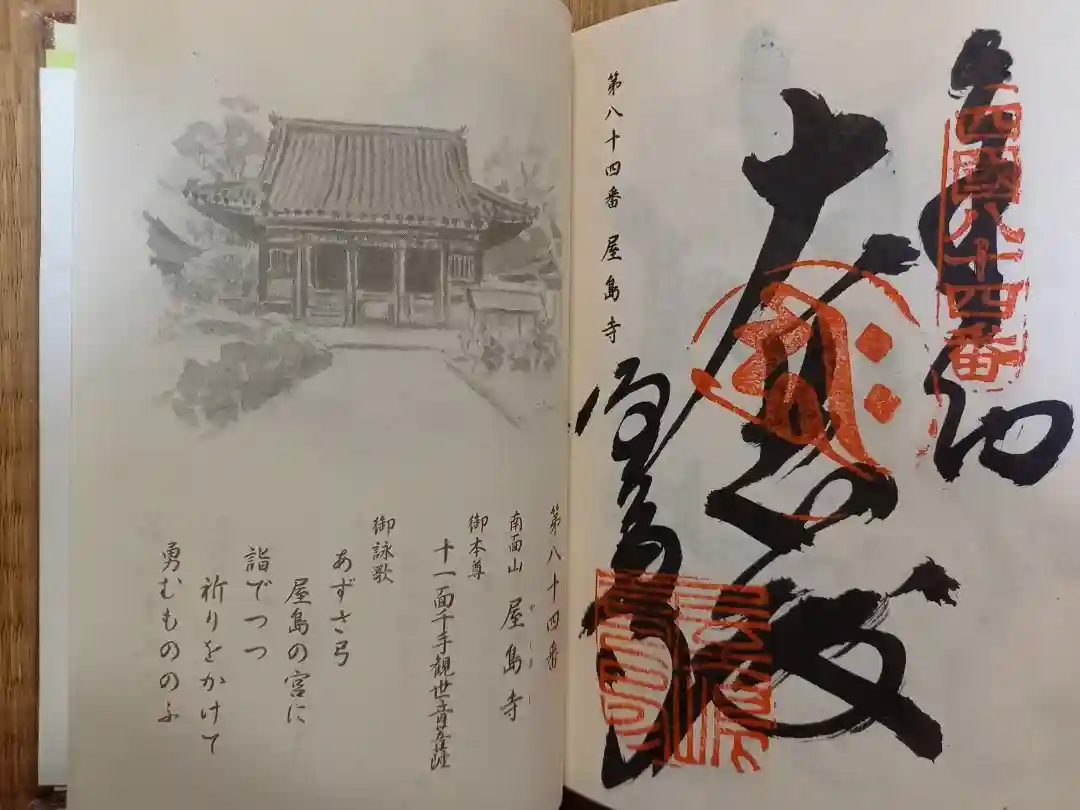 奉納
四國八十四番
大悲殿
屋島寺
第八十四番 屋島寺
第八十四番
南面山 屋島寺
御本尊
十一面千手観世音菩薩
御詠歌
あずさ弓
屋島の宮に
詣でつつ
祈りをかけて
勇むもののふ